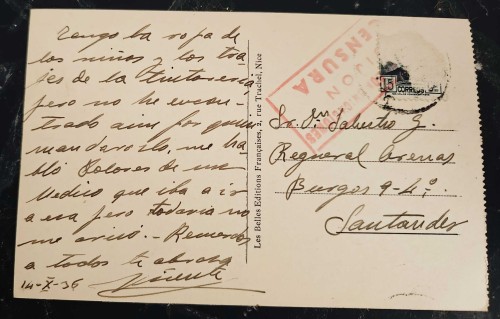 Tengo la ropa de
los niños y los tra-
jes de la tintorería
pero no he encon-
trado aún por quien
mandarosla, me ha-
bló Dolores de un
Medico que iba a ir
a esa pero todavia no
me avisó.- Recuerdos
a todos te abraza
Vicente
14-X-36
Les Belles Editions Françaises, 2, rue Trachel, Nice
CENSURA
GIJON
15 CORREOS
Sr. Dn. G.
Regueral Arenas
Burgos 9-4º.
Santander